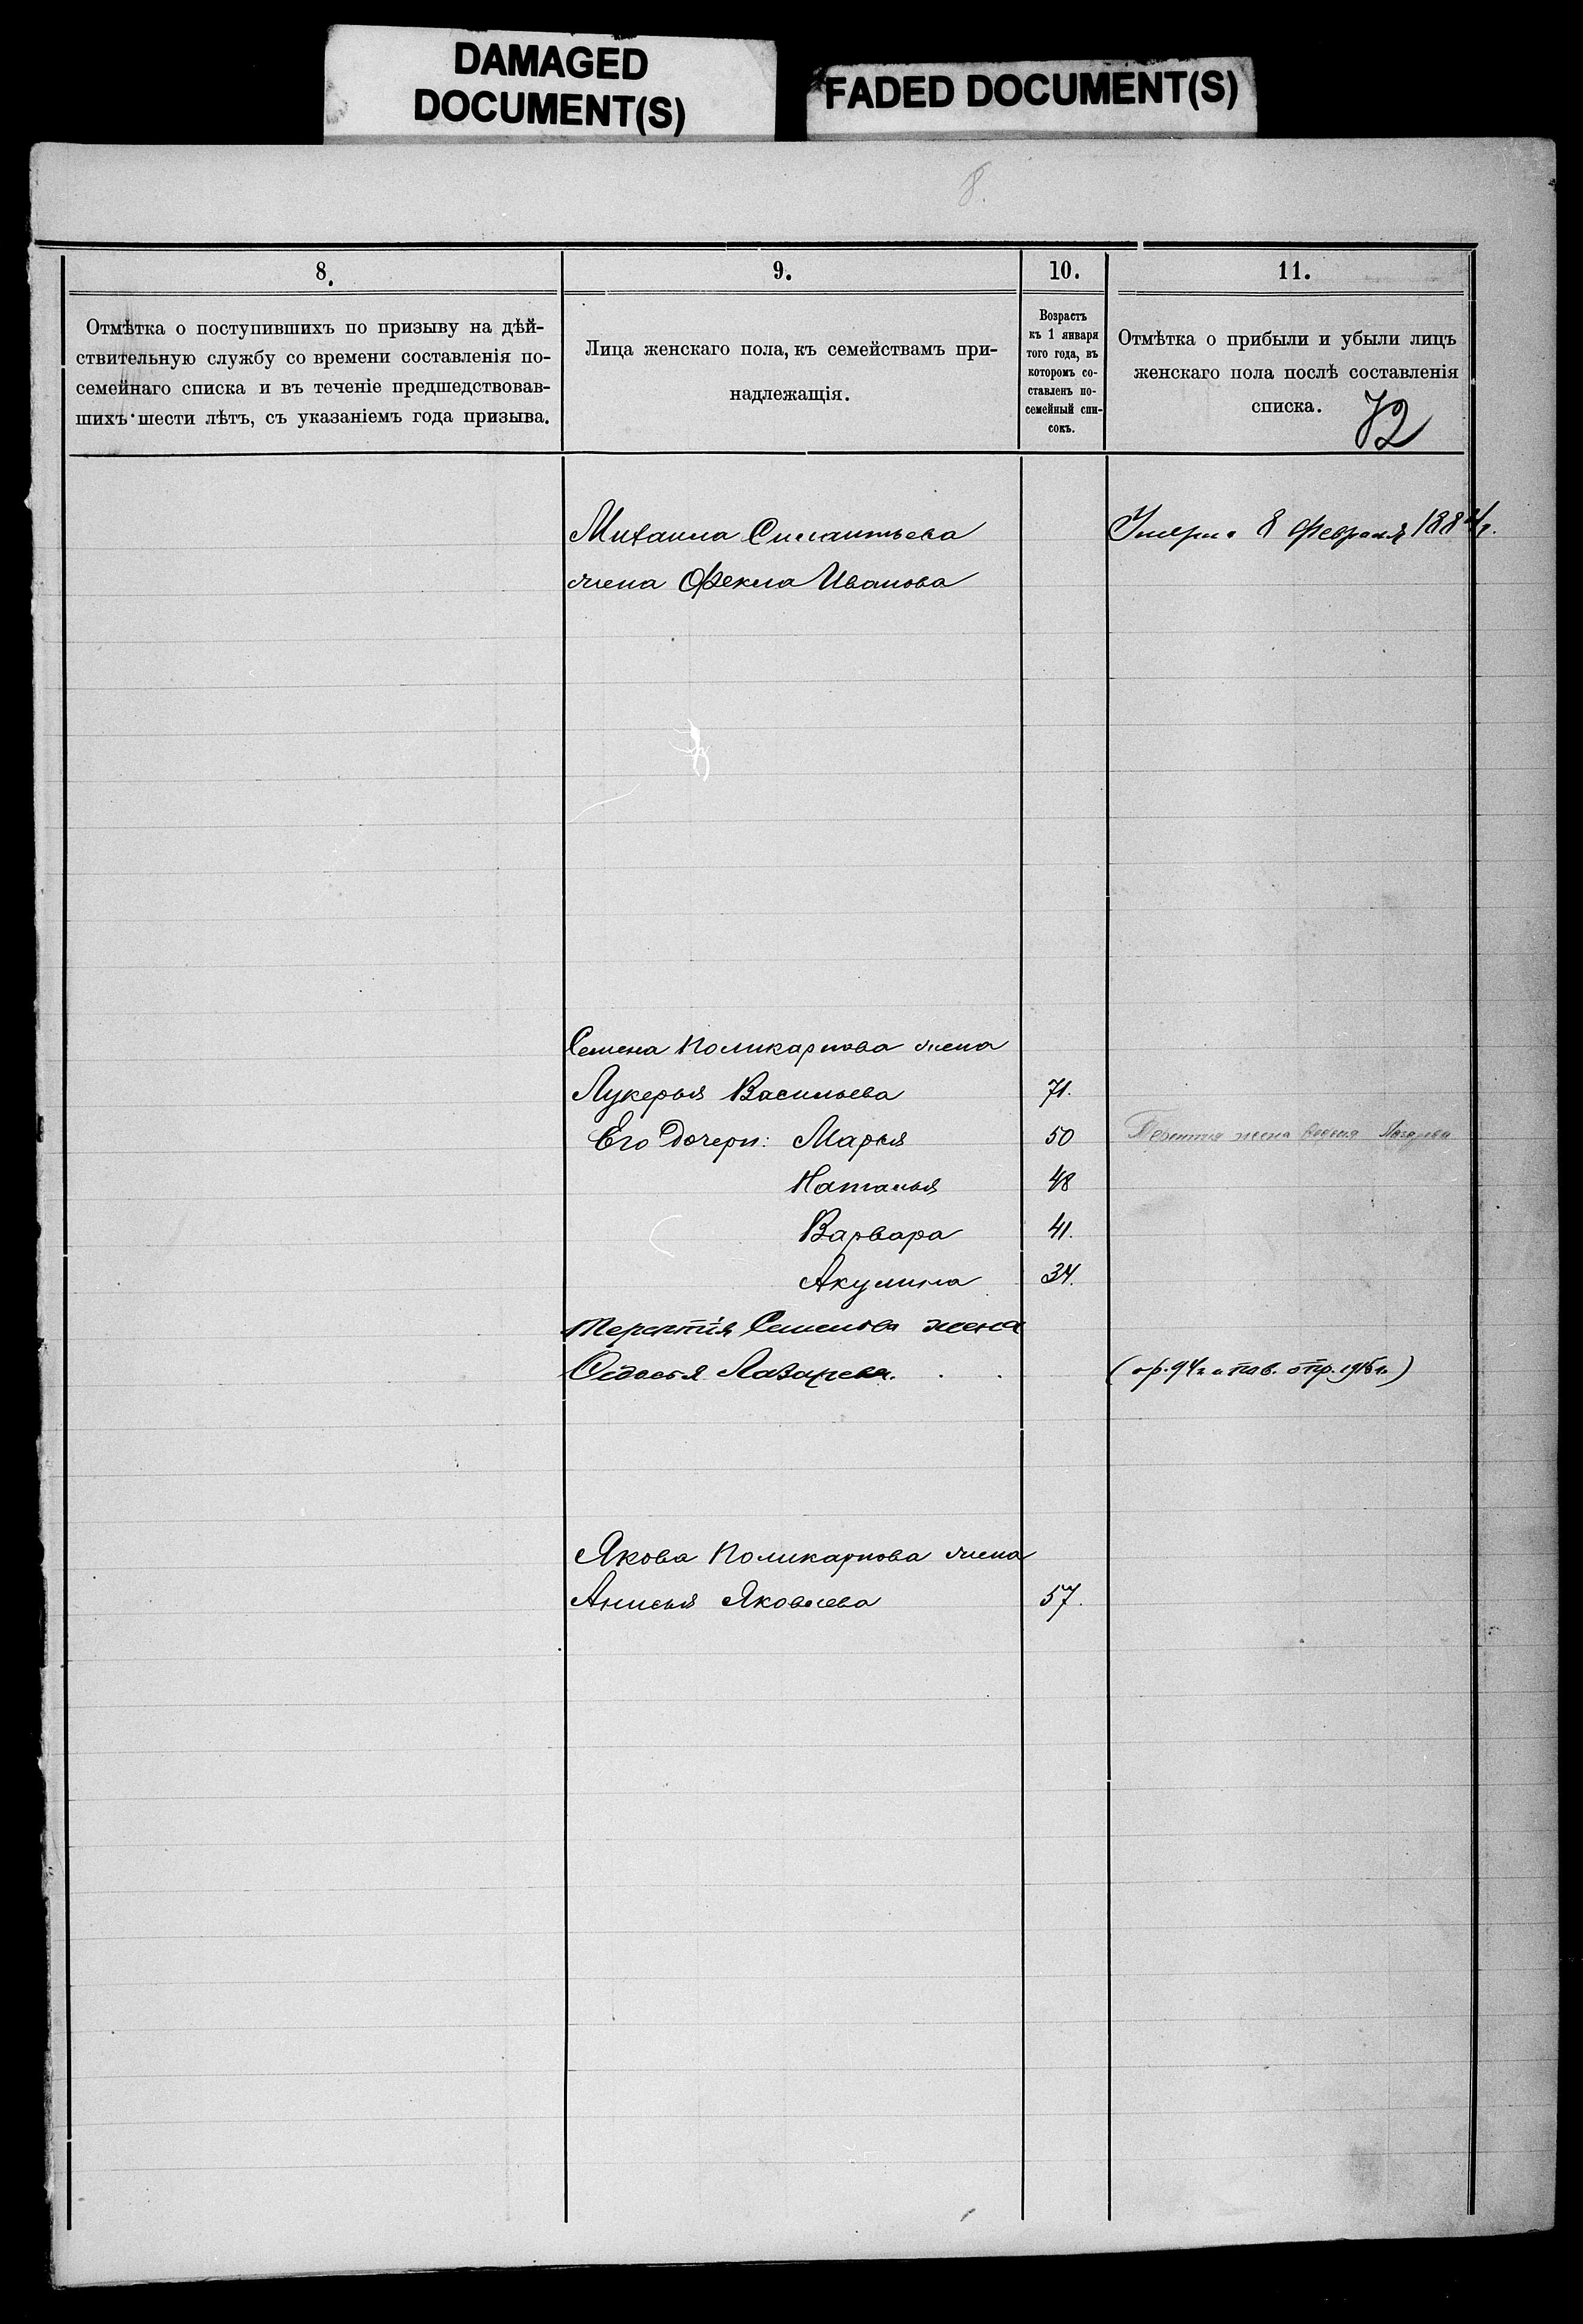 DAMAGED
DOCUMENT(S)
FADED DOCUMENT(S)
8.
8.
9.
10.
11.
Отмѣтка о поступившихъ по призыву на дѣй-
ствительную службу со времени составленія по-
семейнаго списка и въ теченіе предшедствовав-
шихъ шести лѣтъ, съ указаніемъ года призыва.
Лица женскаго пола, къ семействамъ при-
надлежащія.
Возрастъ
къ 1 января
того года, въ
которомъ со-
ставленъ по-
семейный спи-
сокъ.
Отмѣтка о прибыли и убыли лицъ
женскаго пола послѣ составленія
списка.
72
Михаила Силантьева
жена Фекла Иванова
8 Февраля
Семена Поликарпова жена
Лукерья Васильева 71.
Его дочери: Марья 50
жена
Наталья 48
Варвара 41.
Акулина 34.
Терентія Семенова жена
Лазарева.
Якова Поликарпова жена
Анисья Яковлева 57.